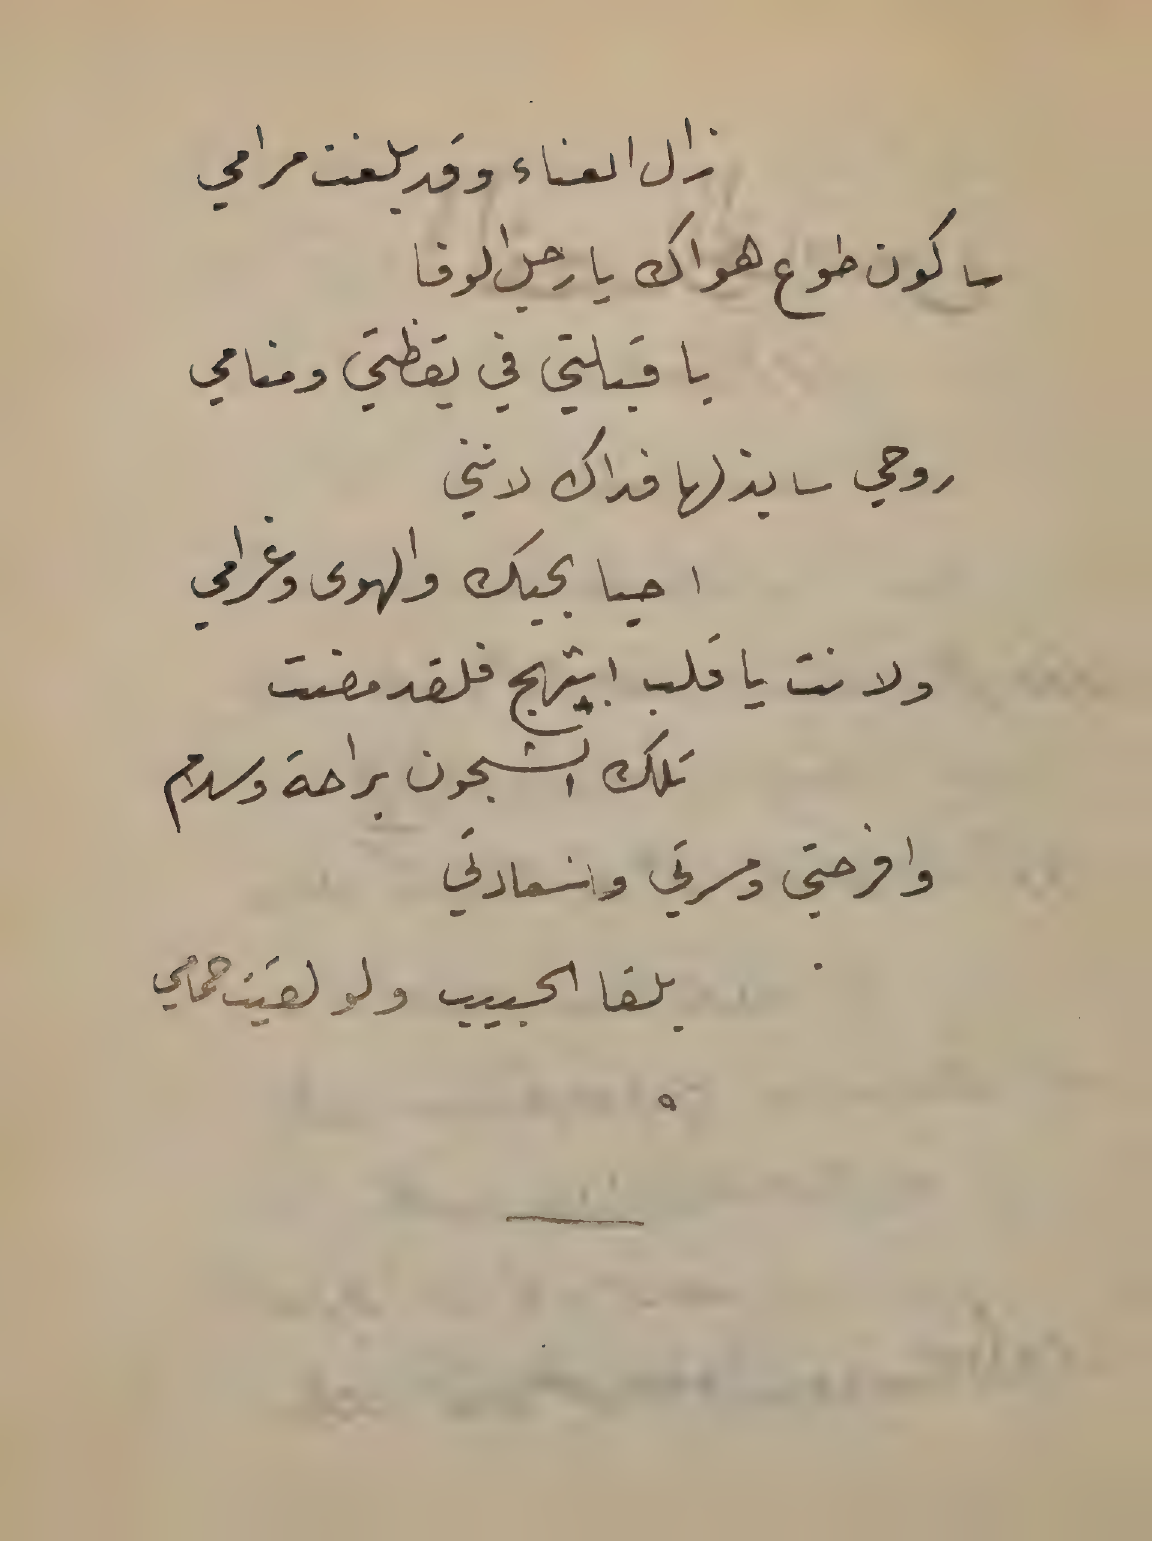 زال العناء وقد بلغت مرامي
ساكون طوع هواك يا رجل الوفا
يا قبلتي في يقظتي ومنامي
روحي سابذلها فداك لانني
احيا بحبك والهوى وغرامي
ولانت يا قلب ابتهج فلقد مضت
تلك الشجون براحة وسلام
وافرحتي ومسرتي واسعادتي
بلقا الحبيب ولو لقيت حمامي